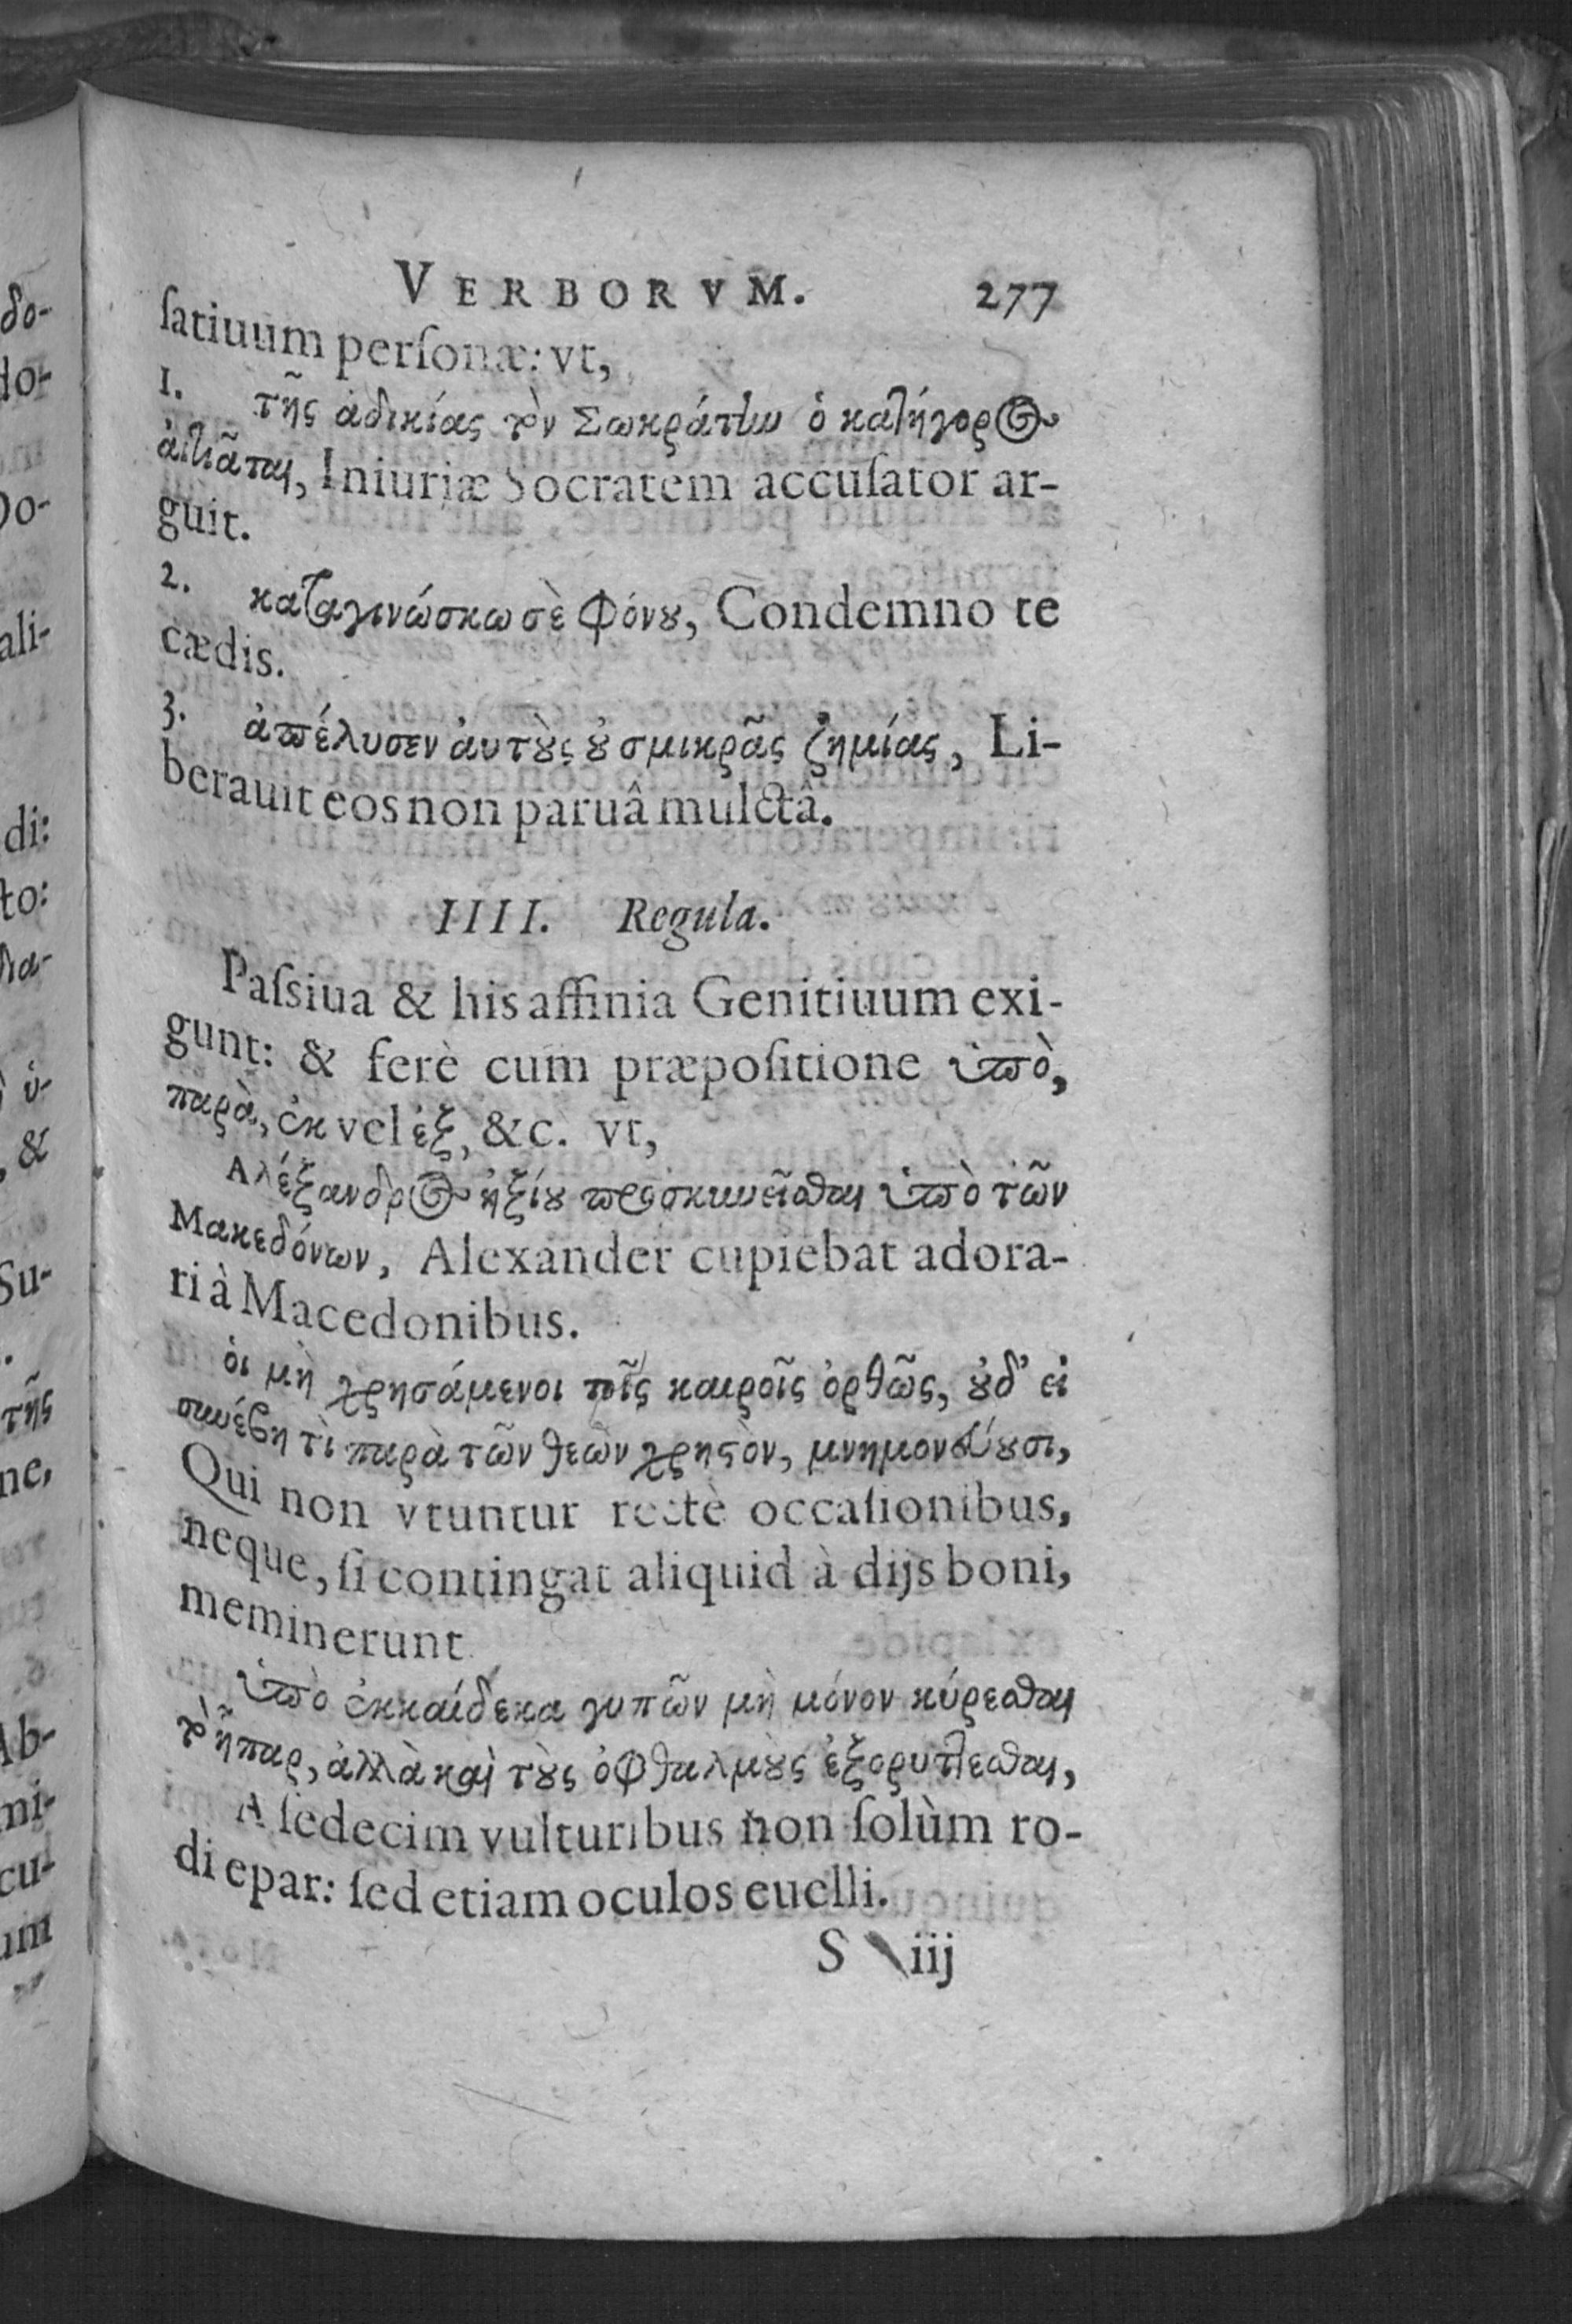 VERBORVM. 277
ſatiuum perſonæ: vt,
1. τῆς ἀδικίας τὸν Σωκράτην ὁ κατήγορος
ἀιτιᾶται, Iniuriæ Socratem accuſator ar-
guit.
2. καταγινώσκω σὲ φόνου, Condemno te
cædis.
3. ἀπέλυσεν ἀυτοὺς ὀυ σμικρᾶς ζημίας, Li-
berauit eos non paruâ mulctâ.
IIII. Regula.
Paſsiua & his affinia Genitiuum exi-
gunt: & ferè cum præpoſitione ὑπὸ,
παρὰ, ἐκ vel ἐξ, &c. vt,
Αλέξανδρος ἠξίου προσκυνεῖσθαι ὑπὸ τῶν
Μακεδόνων, Alexander cupiebat adora-
ri à Macedonibus.
ὁι μὴ χρησάμενοι τοῖς καιροῖς ὀρθῶς, ὀυδ' ἐι
συνέβη τὶ παρὰ τῶν θεῶν χρηστὸν, μνημονεύουσι,
Qui non vtuntur rectè occaſionibus,
neque, ſi contingat aliquid à dijs boni,
meminerunt
ὑπὸ ἑκκαίδεκα γυπῶν μὴ μόνον κύρεσθαι
τὸ ἧπαρ, ἀλλὰ καὶ τοὺς ὀφθαλμοὺς ἐξορύττεσθαι,
A ſedecim vulturibus non ſolùm ro-
di epar: ſed etiam oculos euelli.
S iij
δο-
do-
Do-
ali-
di:
to:
δια-
ὑ-
, &
Su-
τῆς
ne,
Ab-
mi-
cu-
um